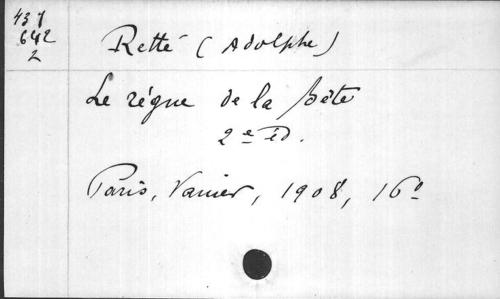 437
642
2
Retté (Adolphe)
Le règne de la Bête
2e Ed.
Paris, Vanier, 1908, 16°